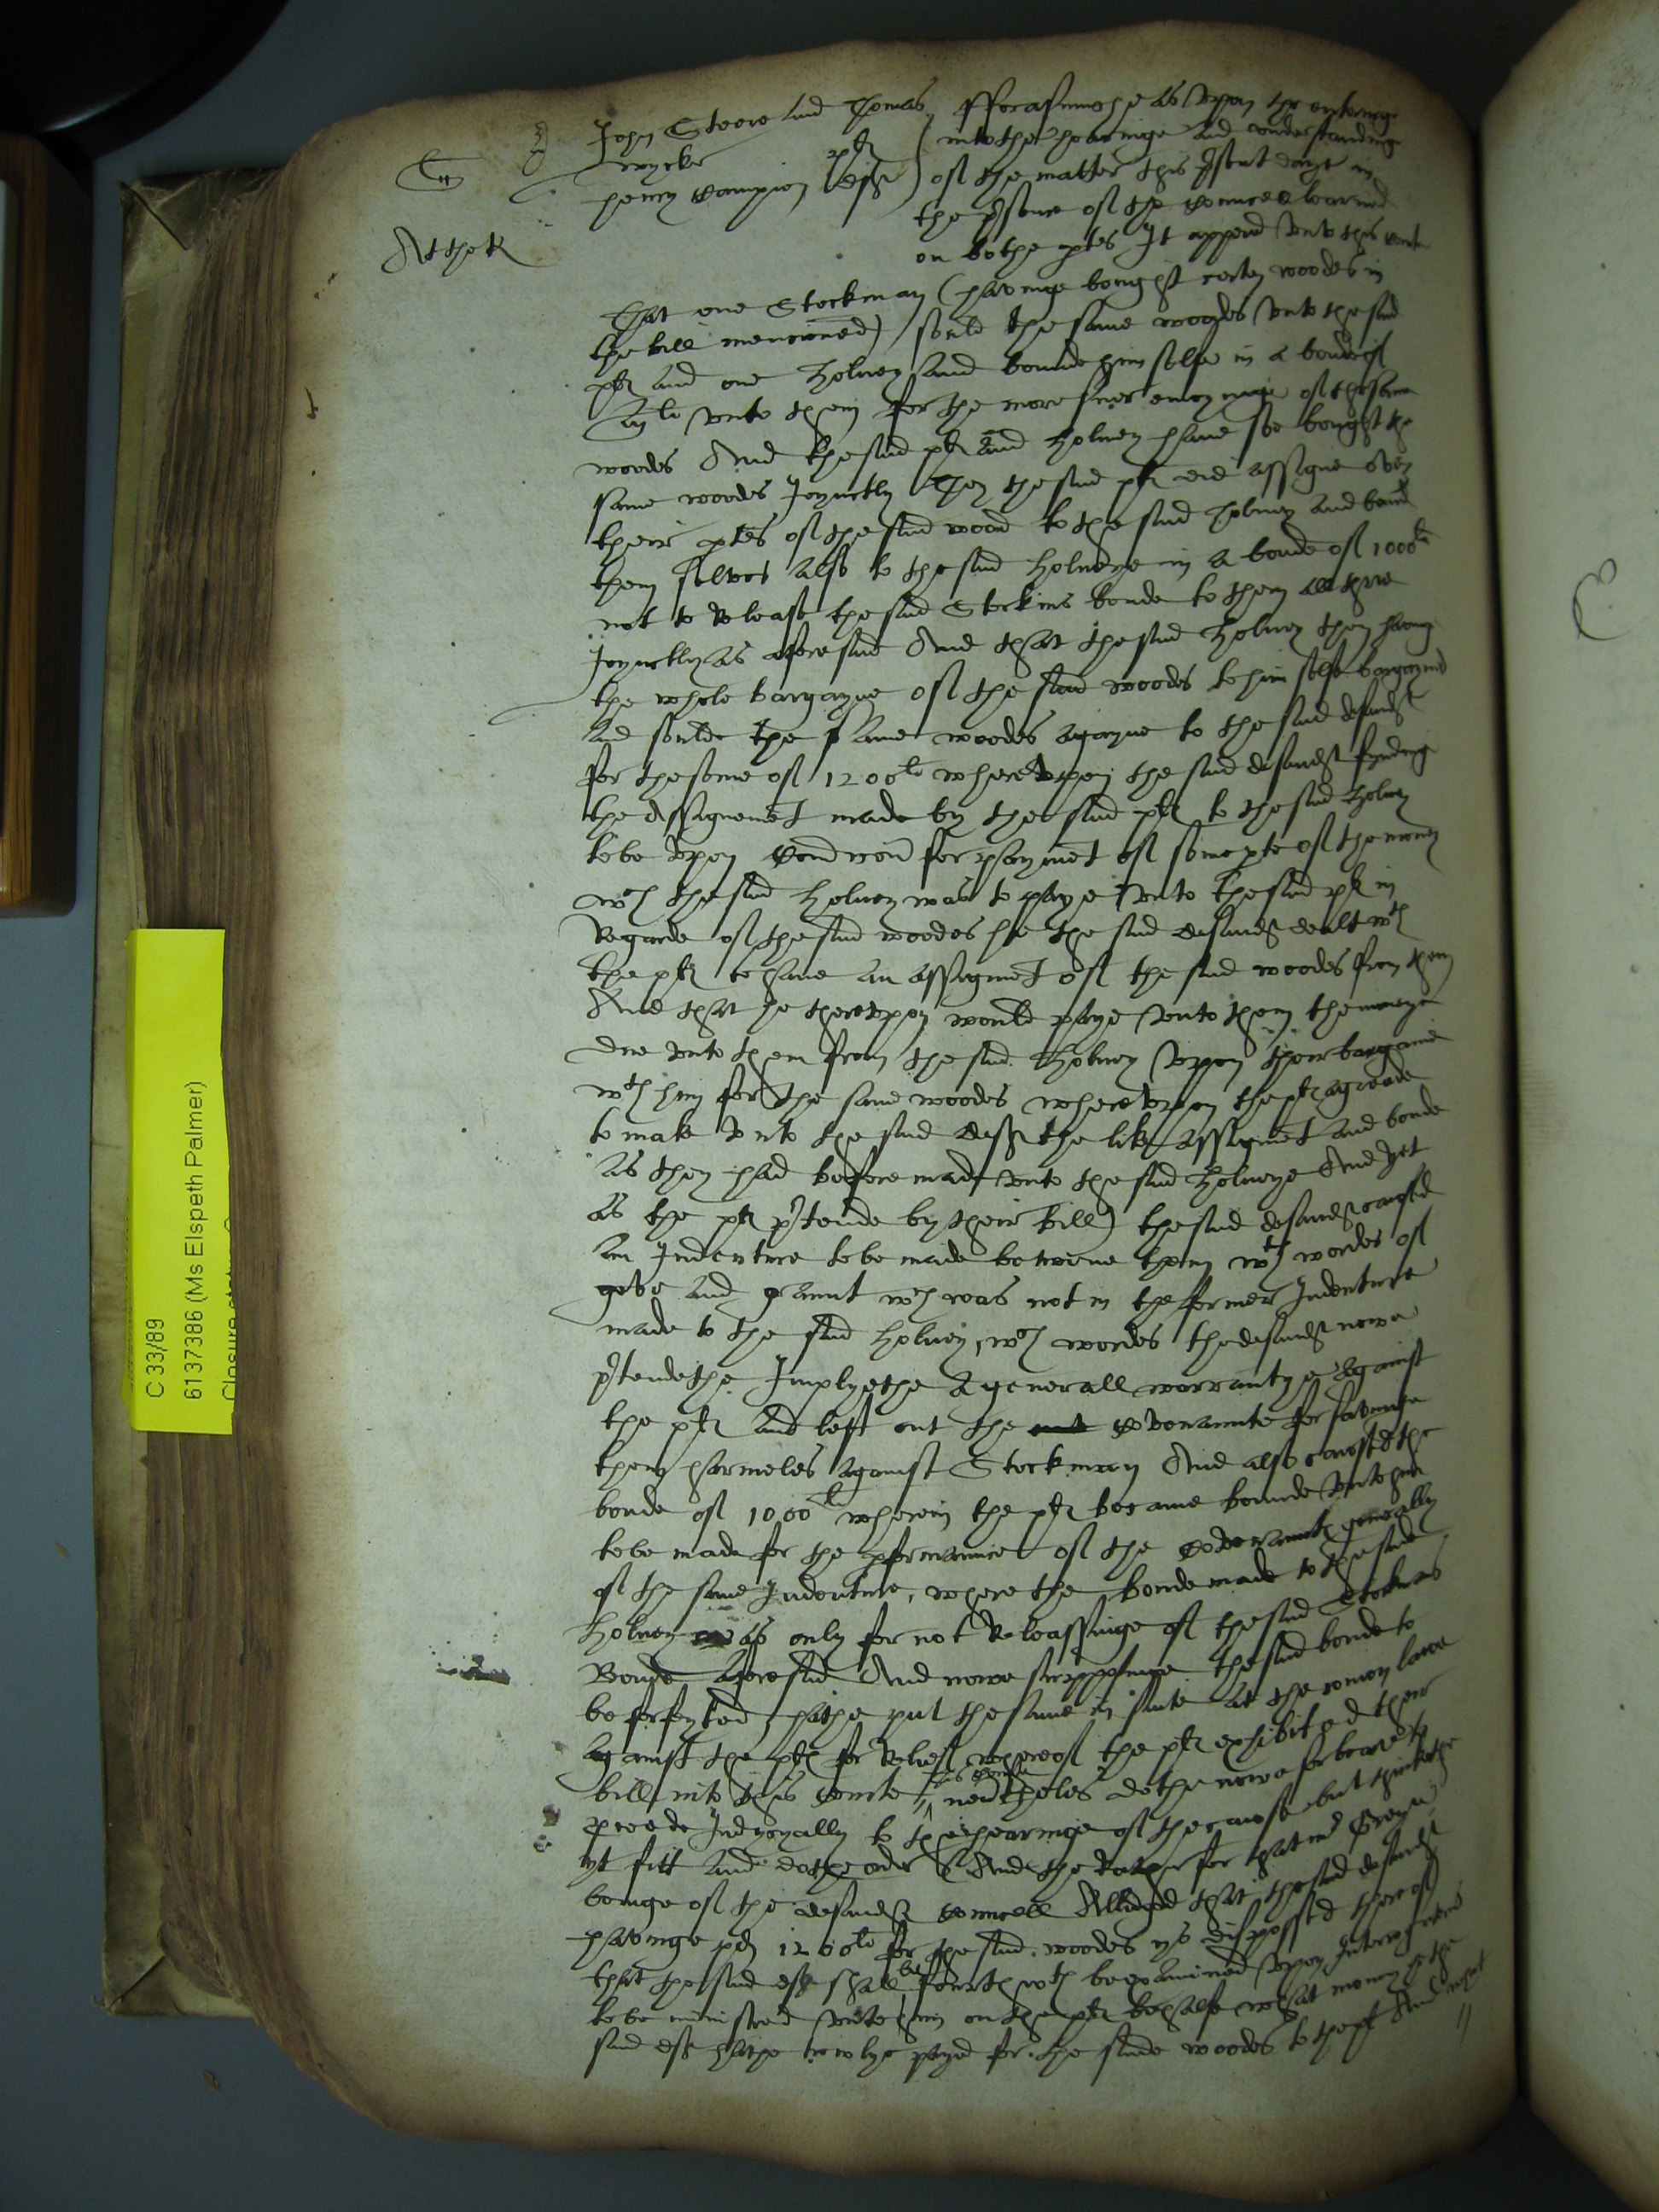 John Steere and Thomas
wycke plt
henry Campion deft
Atthek
Fforasmuche as upon the enteringe
into the hearinge and understanding
of the matter this pñt daye in
the pñce of the councell learned
on bothe ptes It appeared unto this Courte
that one Stockman (havinge bought certen woodes in
the bill mencioned) sould the same woodes unto the said
plt and one Holney and bounde him selfe in a bonde of
unto them for the more suer enioyninge of the same
woodes And the said plt and Holney have soe bought the
same woodes Joynctly Then the said plt did assigne over
their ptes of the said wood to the said Holney and bound
them selves also to the said Holneye in a bonde of 1000li
not to Release the said Stockms bonde to them all three
Joynctly as aforesaid And that the said Holney then having
the whole bargayne of the said woodes to him selfe bargayned
and soulde the same woodes agayne to the said defendt
for the some of 1200li whereupon the said defendt fynding
the Assignemt made by the said plt to the said Holney
to be upon Condicon for paymt of some pte of the money
wch the said Holney was to paye unto the said plt in
Regarde of the said woodes he the said defendt dealt wth
the plt to have an assignmt of the said woodes from them
And that he thereupon would paye unto them the moneye
due unto them from the said Holney uppon their bargaine
wth him for the same woodes whereupon the plt agreede
to make unto the said deft the like assignmt and bonde
as they had before made unto the said Holneye And yet
as the plt ptende by their bill) the said defendt caused
an Indenture to be made betwene them wth wordes of
geve and graunt wch was not in the former Indenture
made to the said Holney, wch wordes the defendt nowe
ptendethe Implyethe a generall warrantye against
the plt and left out the Covenante for savinge
them harmeles against Stockman And also caused the
bonde of 1000li wherein the plt became bounde unto him
to be made for the pformance of the Covenaunts generally
of the same Indenture, where the bonde made to the said
Holney was only for not Releassinge of the said Stockmans
Bonde aforesaid And nowe supposinge the said bonde to
be forfeyted hathe put the same in suite at the comon lawe
against the plt for Releif whereof the plt exhibited their
bill into this Courte this Courte neutheles dothe nowe forbeare to
procede Judycyally to the hearinge of the cause but thinkethe
yt fitt and dothe order And the rather for that
beinge of the defendts Councell Alledged that the said defendt
havinge pd 1200li for the said woodes ys dispossed thereof
that the said deft shall be fourthwth be examined upon Interrogatories
to be ministred unto him on the plt behalfe what money he the
said deft hathe trewlye payed for the saide woodes to the plt And what
C 33/89
6137386 (Ms Elspeth Palmer)